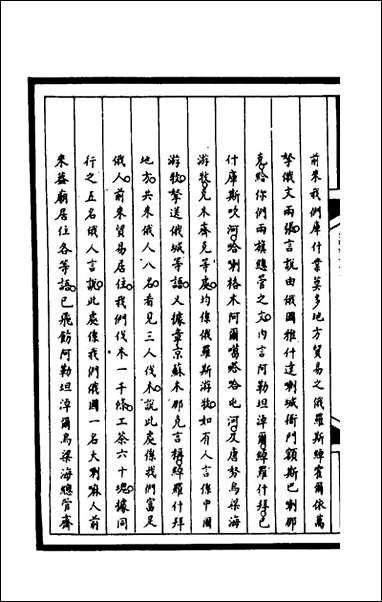 前來我們庫什業莫多地方貿易之俄羅斯綽霍爾依萬
拏俄文兩張言說由俄國雅什達喇城衙門額斯巴喇那
克給你們兩旗總管之文內言阿勒坦淖爾綽羅什拜巴
什庫斯吹河哈喇格木阿爾噶哈屯河及唐努烏梁海
游牧克木齊克等處均係俄羅斯游牧如有人言係中國
游牧拏送俄城等語又據章京蘇木那克言稱綽羅什拜
地方共來俄人八名看見三人伐木說此處係我們富足
俄人前來貿易居住我們伐木一千條工茶六十塊據同
行之五名俄人言說此處係我們俄國一名大喇嘛人前
來蓋廟居住各等語已飛飭阿勒坦淖爾烏梁海總管齊